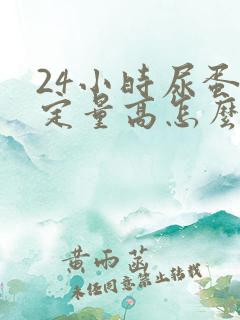 24小时尿蛋
定量高怎麽
黄雨菡
未经同意禁止转载